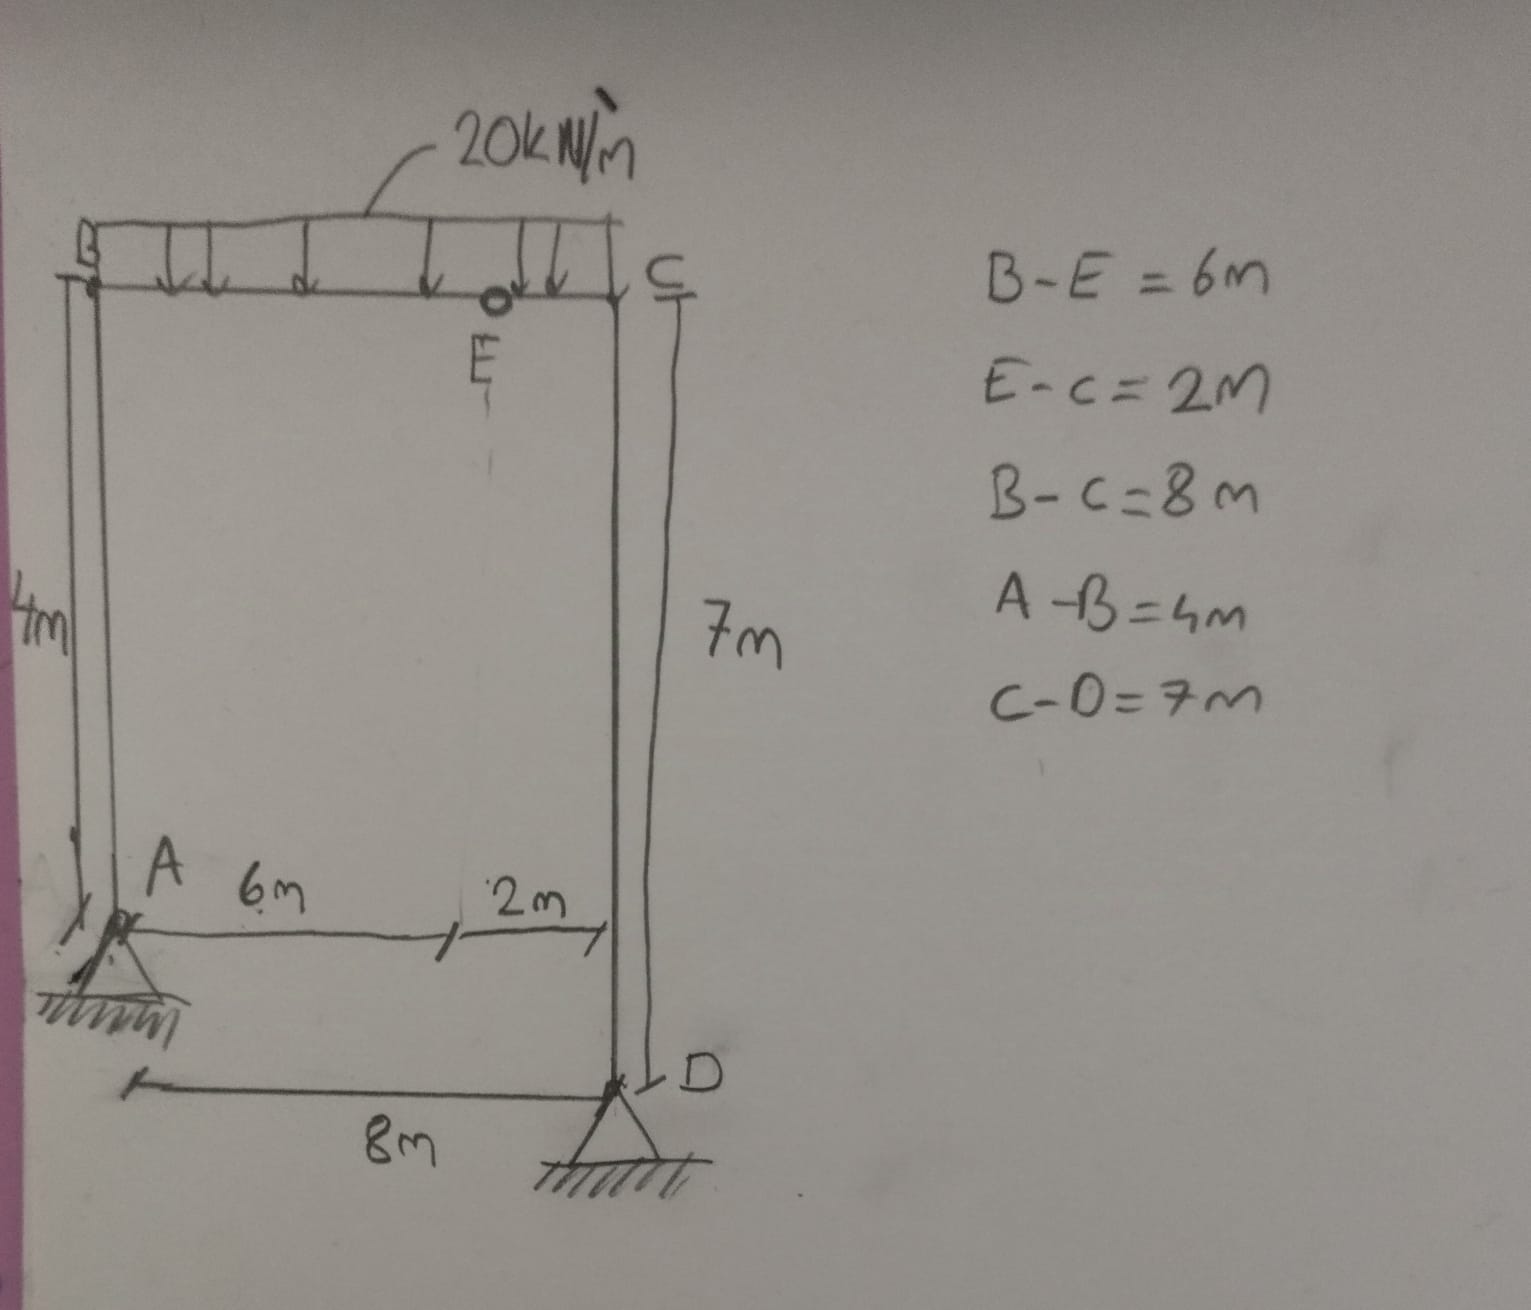 20kN/m
B
C
E
4m
7m
A
6m
2m
D
8m
B-E = 6m
E-C = 2m
B-C = 8m
A-B = 4m
C-D = 7m